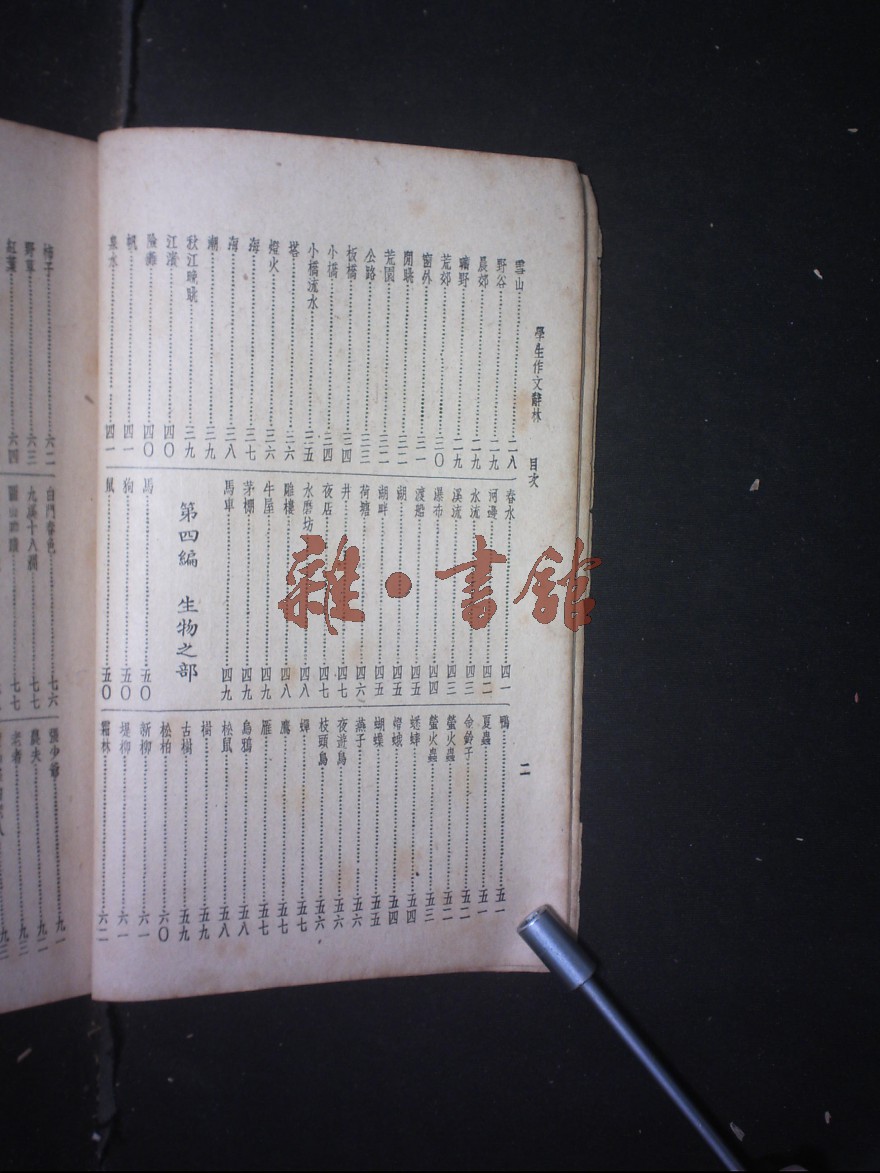 學生作文辭林 目次 二
雪山 二八
野谷 二九
晨郊 二九
曠野 二九
荒郊 三〇
窗外 三一
閒眺 三二
荒園 三二
公路 三三
板橋 三四
小橋 三四
小橋流水 三五
塔 三六
燈火 三六
海 三七
海 三八
潮 三九
秋江晚眺 三九
江濱 四〇
險灘 四〇
帆 四一
泉水 四一
春水 四一
河邊 四二
水流 四三
溪流 四三
瀑布 四四
渡船 四五
湖 四五
湖畔 四五
荷塘 四六
井 四七
夜店 四七
水磨坊 四八
雕樓 四八
牛屋 四九
茅棚 四九
馬車 四九
第四編 生物之部
馬 五〇
狗 五〇
鼠 五一
鴨 五一
夏蟲 五一
金鈴子 五二
螢火蟲 五二
螢火蟲 五三
蟋蟀 五四
燈蛾 五四
蝴蝶 五五
燕子 五六
夜遊鳥 五六
枝頭鳥 五六
蟬 五七
鷹 五七
雁 五七
烏鴉 五八
松鼠 五八
樹 五九
古樹 五九
松柏 六〇
新柳 六一
堤柳 六一
霜林 六二
柿子 六二
野草 六三
紅葉 六四
白門春色 七六
九溪十八澗 七七
七七
張少爺 九一
農夫 九二
老者 九三
雜·書館